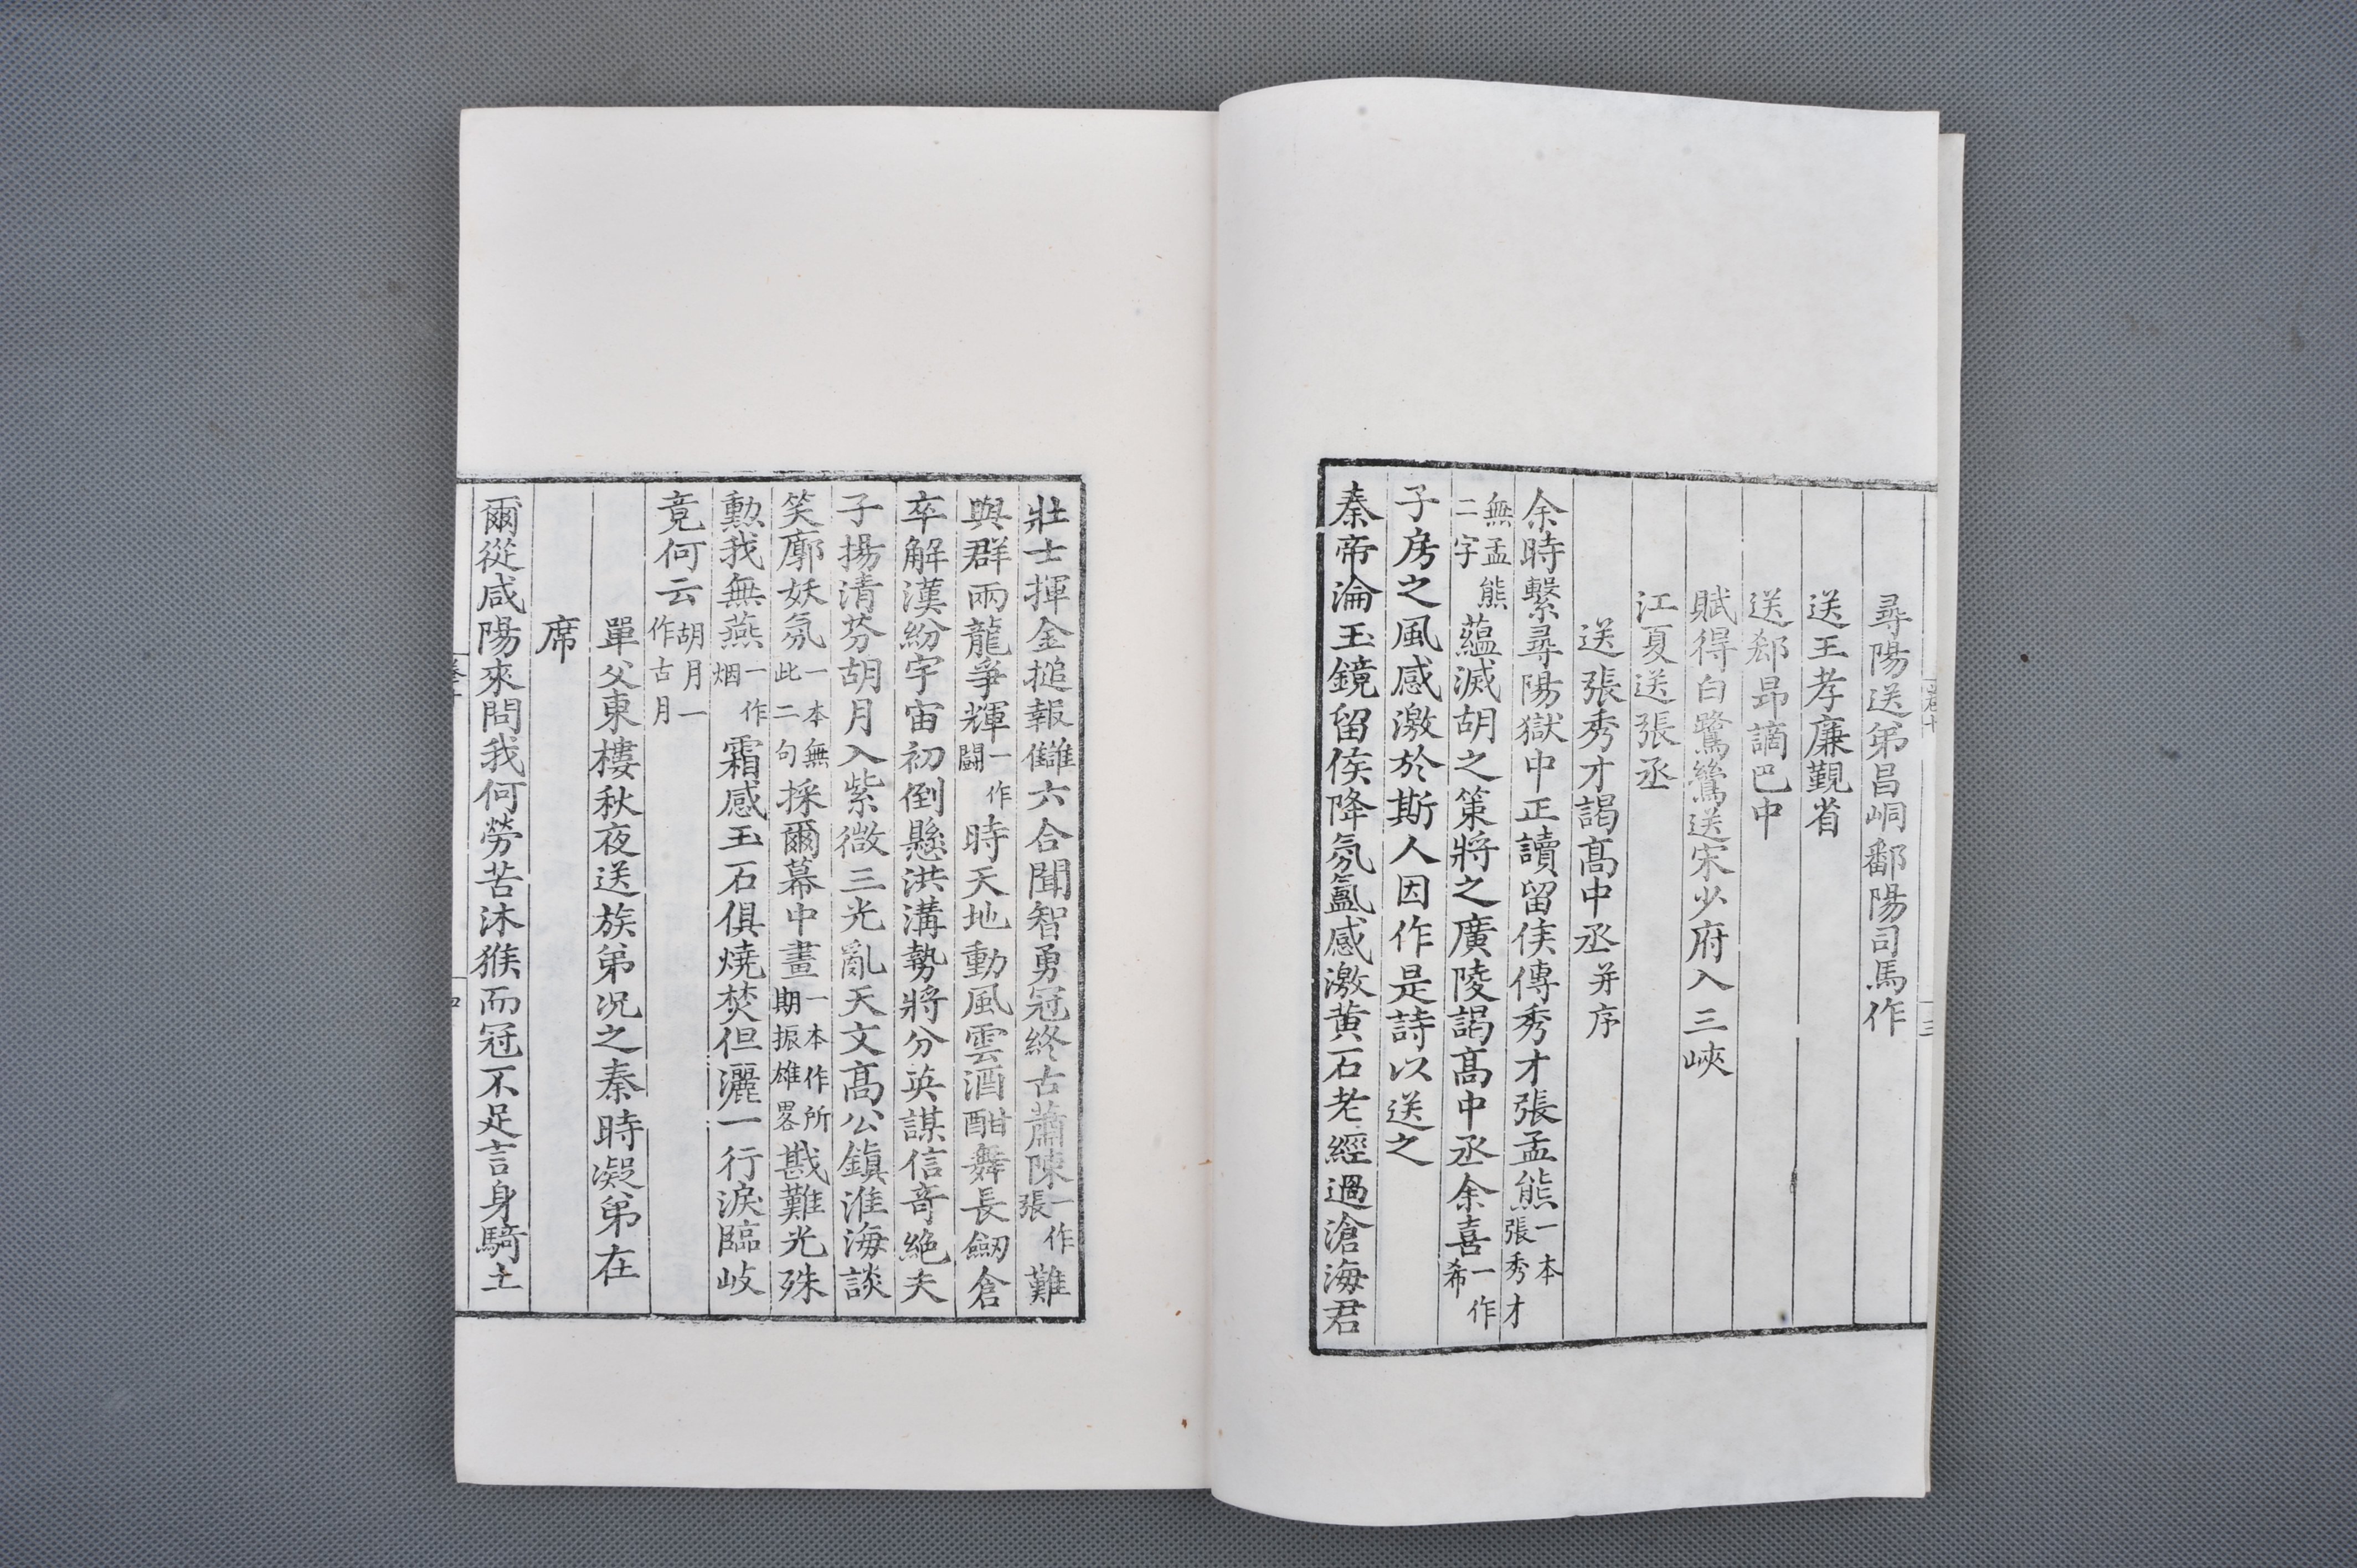 尋陽送弟昌峒鄱陽司馬作
送王孝廉覲省
送郄昂謫巴中
賦得白鷺鷥送宋少府入三峽
江夏送張丞
送張秀才謁髙中丞并序
余時繫尋陽獄中正讀留侯傳秀才張孟熊一本張秀才
無孟熊二字蘊滅胡之策將之廣陵謁髙中丞余喜一作希
子房之風感激於斯人因作是詩以送之
秦帝淪玉鏡留侯降氛氳感激黄石老經過滄海君
壯士揮金搥報讎六合聞智勇冠終古蕭陳一作張難
與群兩龍爭輝一作鬭時天地動風雲酒酣舞長劒倉
卒解漢紛宇宙初倒懸洪溝勢將分英謀信奇絶夫
子揚清芬胡月入紫微三光亂天文髙公鎮淮海談
笑廓妖氛一本無此二句採爾幕中畫一本作所期振雄畧戡難光殊
勲我無燕一作烟霜感玉石俱燒焚但灑一行淚臨岐
竟何云胡月一作古月
單父東樓秋夜送族弟况之秦時凝弟在
席
爾從咸陽來問我何勞苦沐猴而冠不足言身騎土